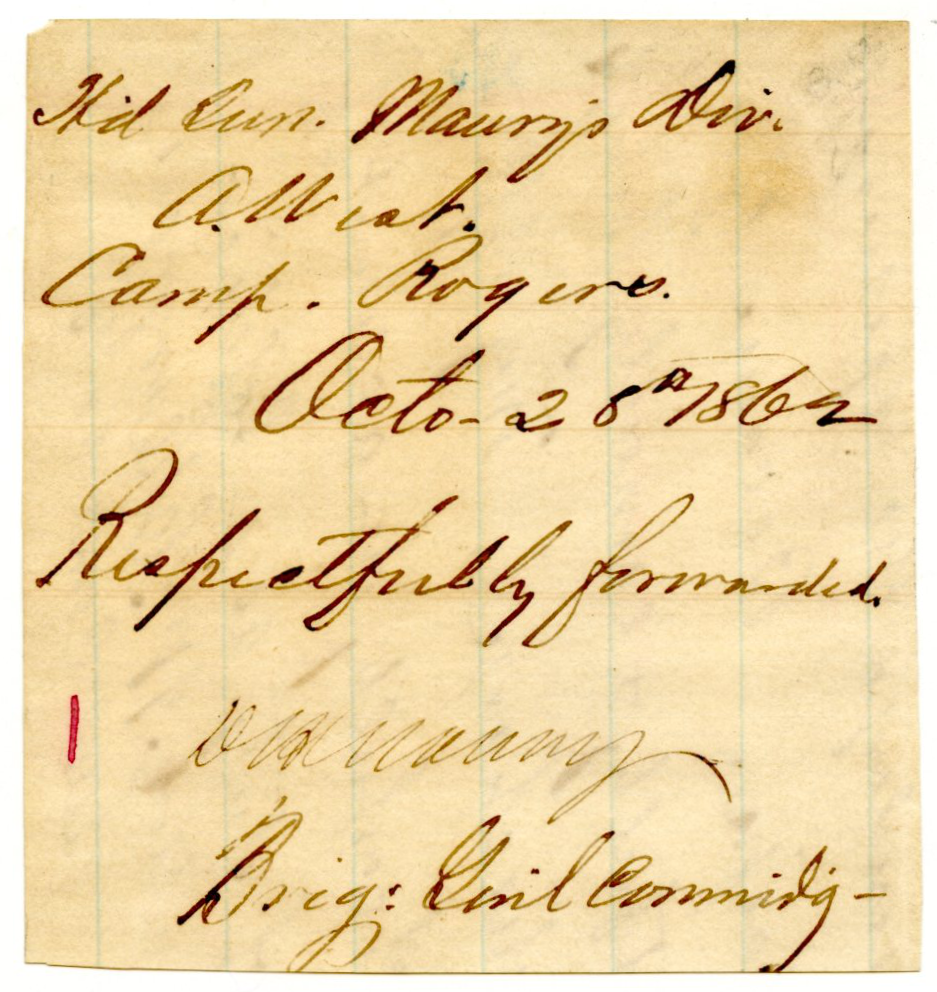 Hd Qurs. Maury's Div.
A. West.
Camp. Rogers.
Octo- 28th 1862
Respectfully forwarded.
D H Maury
Brig: Genl Commdg-